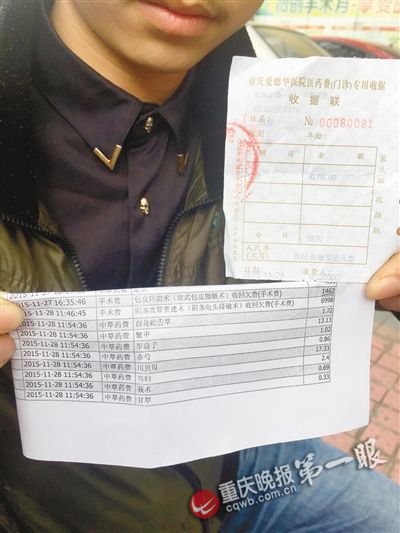 重庆爱德华医院医药费(门诊)专用收据
收据联
№ 00080081
年龄:
项 目 金 额
第三联 收据联
合 计
人民币
(大写)
收费人:
1462
2015-11-27 16:35:46 手术费 包皮环切术(欧式包皮微雕术)收回欠费(手术费) 8998
2015-11-28 11:46:45 手术费
2015-11-28 11:54:36 中草药费 白花蛇舌草 1.72
2015-11-28 11:54:36 中草药费 鳖甲 13.13
2015-11-28 11:54:36 中草药费 车前子 1.02
2015-11-28 11:54:36 中草药费 赤芍 0.86
2015-11-28 11:54:36 中草药费 川贝母 17.33
2015-11-28 11:54:36 中草药费 当归 2.4
2015-11-28 11:54:36 中草药费 莪术 0.69
2015-11-28 11:54:36 中草药费 甘草 0.33
重庆晚报 第一眼
cqwb.com.cn